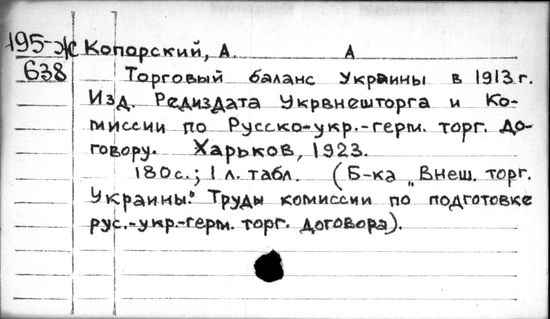 195-Ж Копорский, А. А
638 Торговый баланс Украины в 1913 г.
Изд. Редиздата Укрвнешторга и Ко-
миссии по Русско-укр.-герм. торг. до-
говору. Харьков, 1923.
180 с.; 1 л. табл. (Б-ка „Внеш. торг.
Украины." Труды комиссии по подготовке
рус.-укр.-герм. торг. договора).